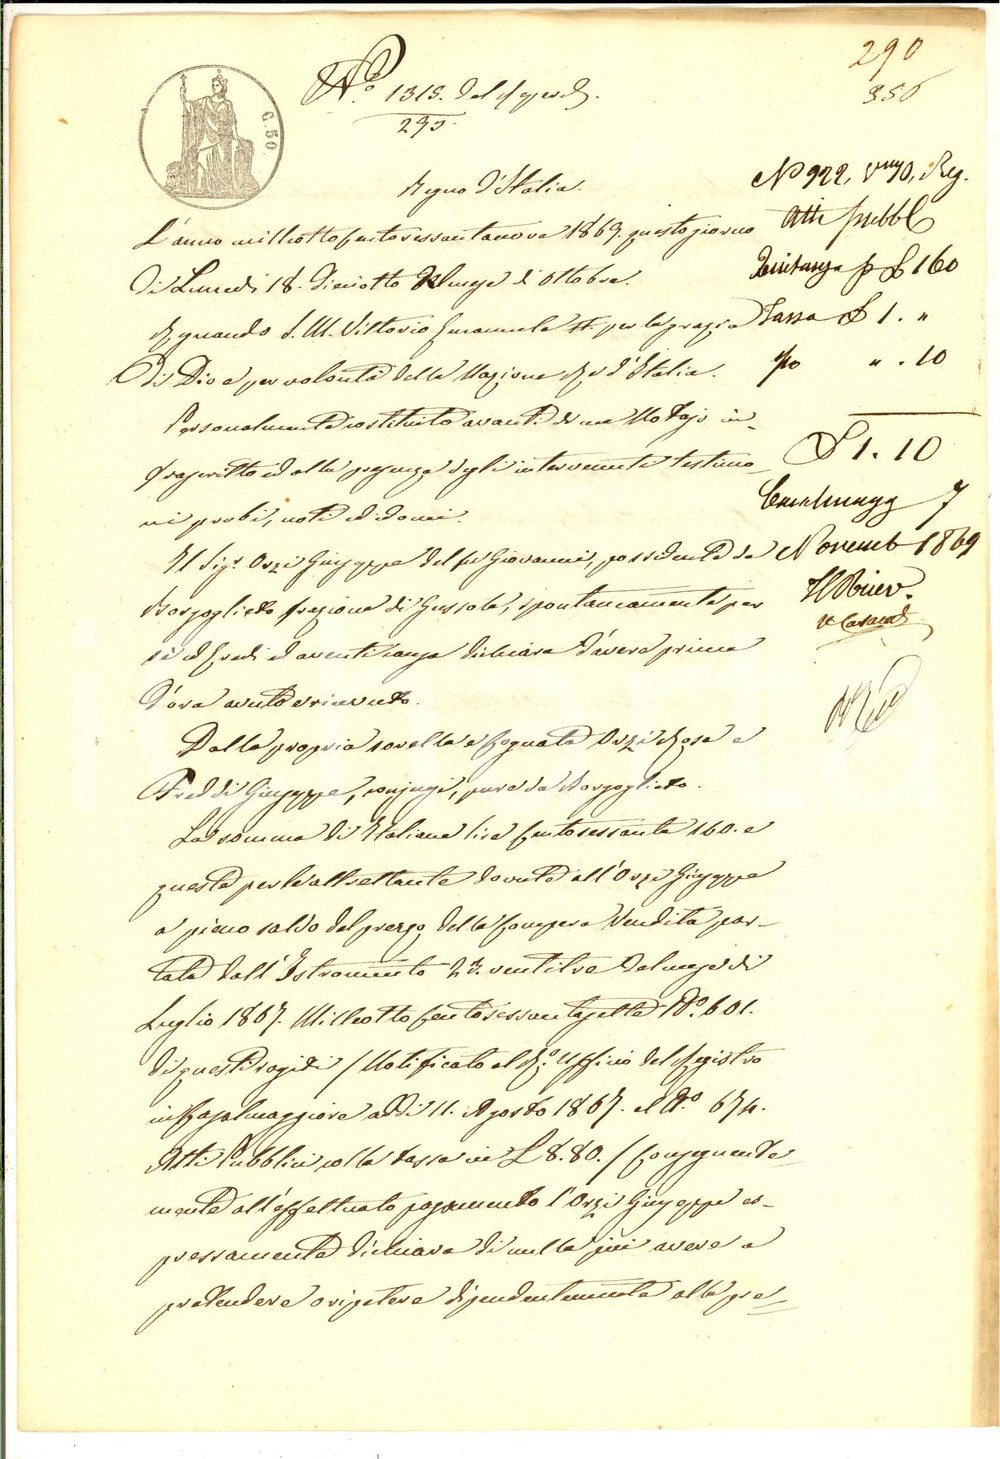 290
356
C. 50
N.º 1315. del Reperto.
295.
Regno d'Italia.
L'anno milleottocentosessantanove 1869. questo giorno
di Lunedi 18. dieciotto del mese di ottobre.
Regnando S. M. Vittorio Emanuele II per la grazia
di Dio e per volontà della Nazione Re d'Italia.
Personalmente costituito avanti di me Notajo in-
frascritto ed alla presenza degli intervenienti testimo-
ni probi, noti ed idonei.
Il Sigr. Orzi Giuseppe del fu Giovanni, possidente da
Borgolieto frazione di Gussola, spontaneamente per
sè ed Eredi ed aventi causa dichiara d'avere prima
d'ora avuto e ricevuto.
Dalla propria sorella e Cognato Orzi Rosa e
Freddi Giuseppe, conjugi, pure da Borgolieto.
La somma di Italiane lire Centosessanta 160. e
queste per le altrettante dovute all'Orzi Giuseppe
a pieno saldo del prezzo della Compera Vendita por-
tata dall'Istromento 23. ventitre del mese di
Luglio 1867. Milleottocentosessantasette N.º 601.
di questi rogiti / Notificato al R.º Uffizio del Registro
in Casalmaggiore addì 11. Agosto 1867. al N.º 674.
Atti Pubblici colla tassa in £ 8.80. / Conseguente-
mente all'effettuato pagamento l'Orzi Giuseppe es-
pressamente dichiara di nulla più avere a
pretendere o ripetere dipendentemente alla pre-
N.º 922, Vol. 10, Reg.
Atti pubbl
Quitanza p £ 160
Tassa £ 1. "
" . 10
£ 1. 10
Casalmagg 7
Novemb 1869
Il Ricev.